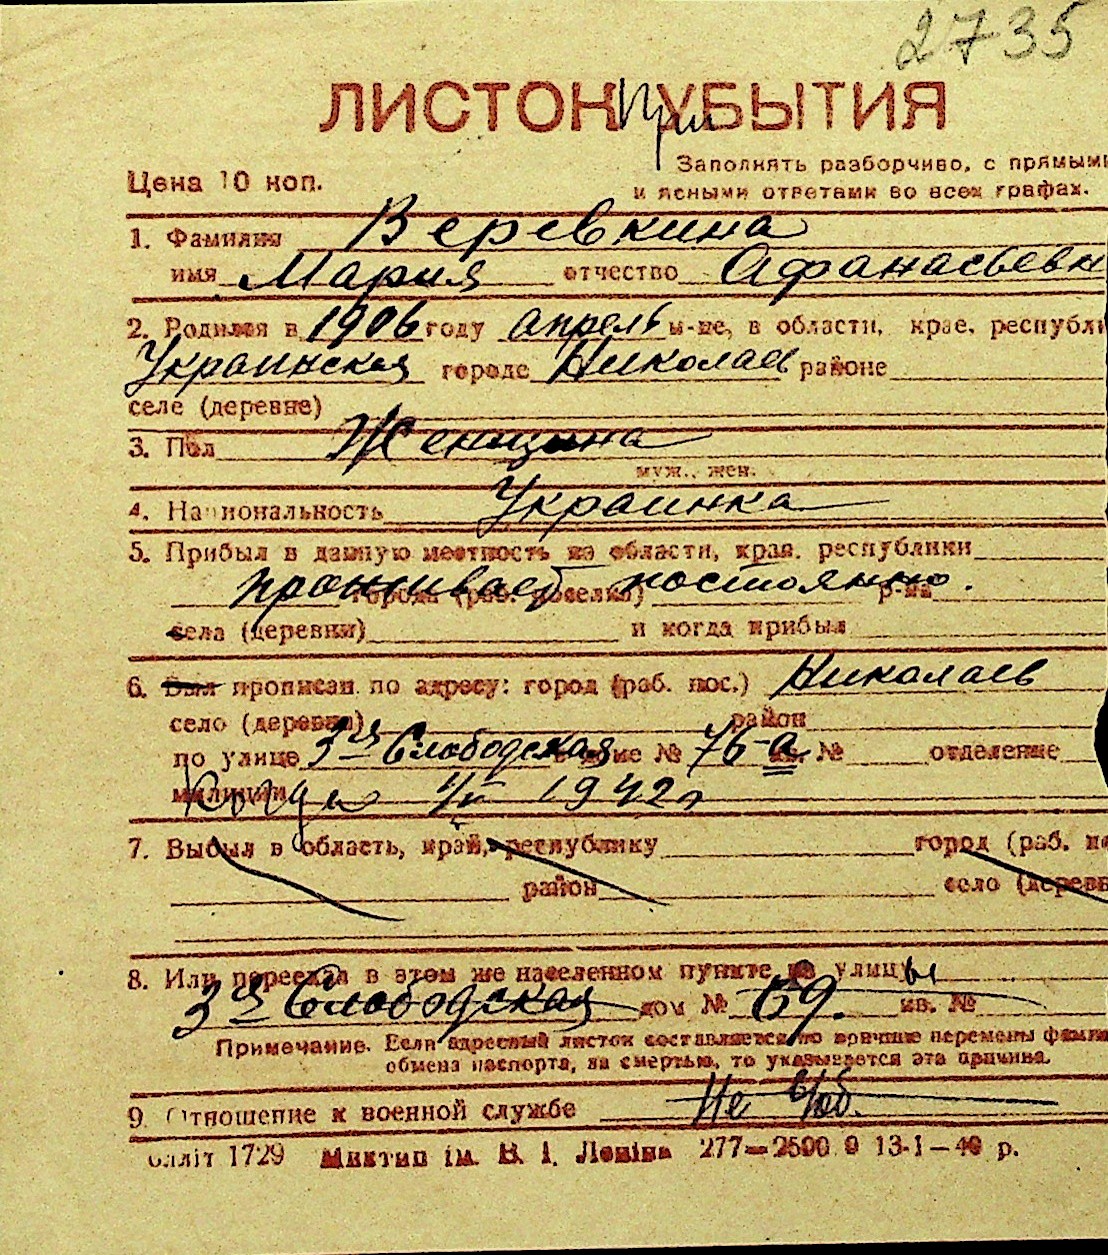 2735
ЛИСТОК При УБЫТИЯ
Цена 10 коп.
Заполнять разборчиво, с прямыми
и ясными ответами во всех графах.
1. Фамилия Веревкина
имя Мария отчество Афанасьевн
2. Родился в 1906 году апрель м-це, в области, крае, республи
Украинская городе Николаев районе
селе (деревне)
3. Пол Женщина
муж., жен.
4. Национальность Украинка
5. Прибыл в данную местность из области, края, республики
проживает постоянно.
города (раб. поселка) р-на
села (деревни) и когда прибыл
6. Был прописан по адресу: город (раб. пос.) Николаев
село (деревня) район
по улице 3-я Слободская доме № 76-а кв. № отделение
милиции 1942 г
7. Выбыл в область, край, республику город (раб. по
район село (деревн
8. Или переехал в этом же населенном пункте из улицы
3-я Слободская дом № 69. кв. №
Примечание. Если адресный листок составляется по причине перемены фамили
обмена паспорта, за смертью, то указывается эта причина.
9. Отношение к военной службе Не в/об.
блліт 1729 Миктип ім. В. І. Леніна 277—2500 9 13-1—40 р.